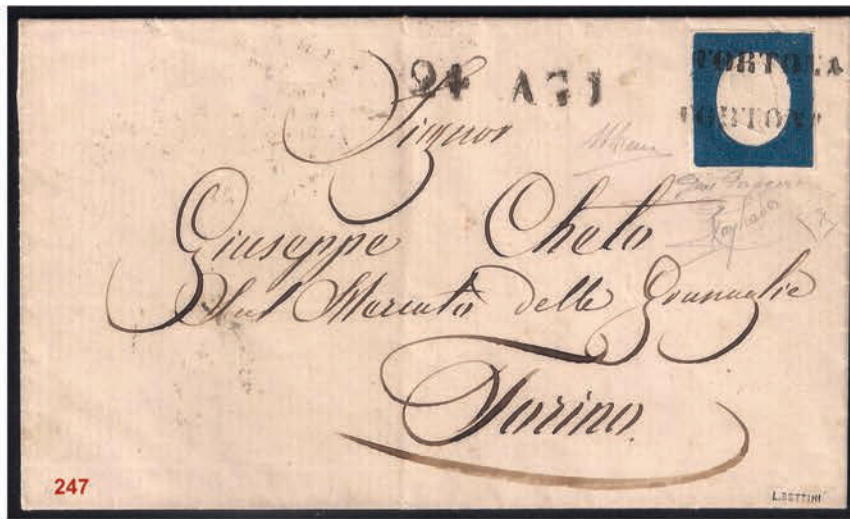 24 AGO
TORTONA
TORTONA
Signor
Giuseppe Chelo
Sul Mercato delle Granaglie
Torino
247
L. BOTTINI